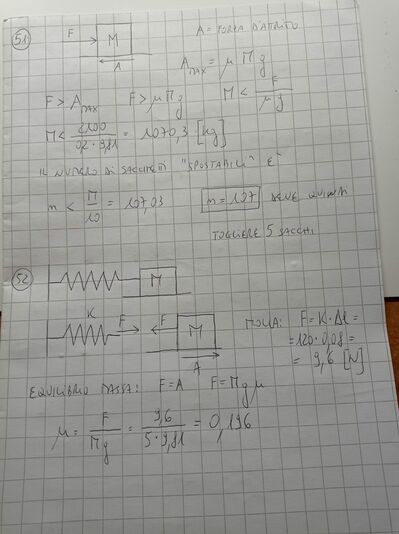 51
F M A = FORZA D'ATTRITO
A
A_MAX = μ M g
F > A_MAX F > μ M g M < F / μ g
M < 2100 / 02 · 9,81 = 1070,3 [kg]
IL NUMERO DI SACCHETTI "SPOSTABILI" E'
m < M / 10 = 107,03 m = 107 DEVE QUINDI
TOGLIERE 5 SACCHI
52
M
K F F M MOLLA: F = K · Δl =
= 120 · 0,08 =
A = 9,6 [N]
EQUILIBRIO MASSA: F = A F = M g μ
μ = F / M g = 9,6 / 5 · 9,81 = 0,196